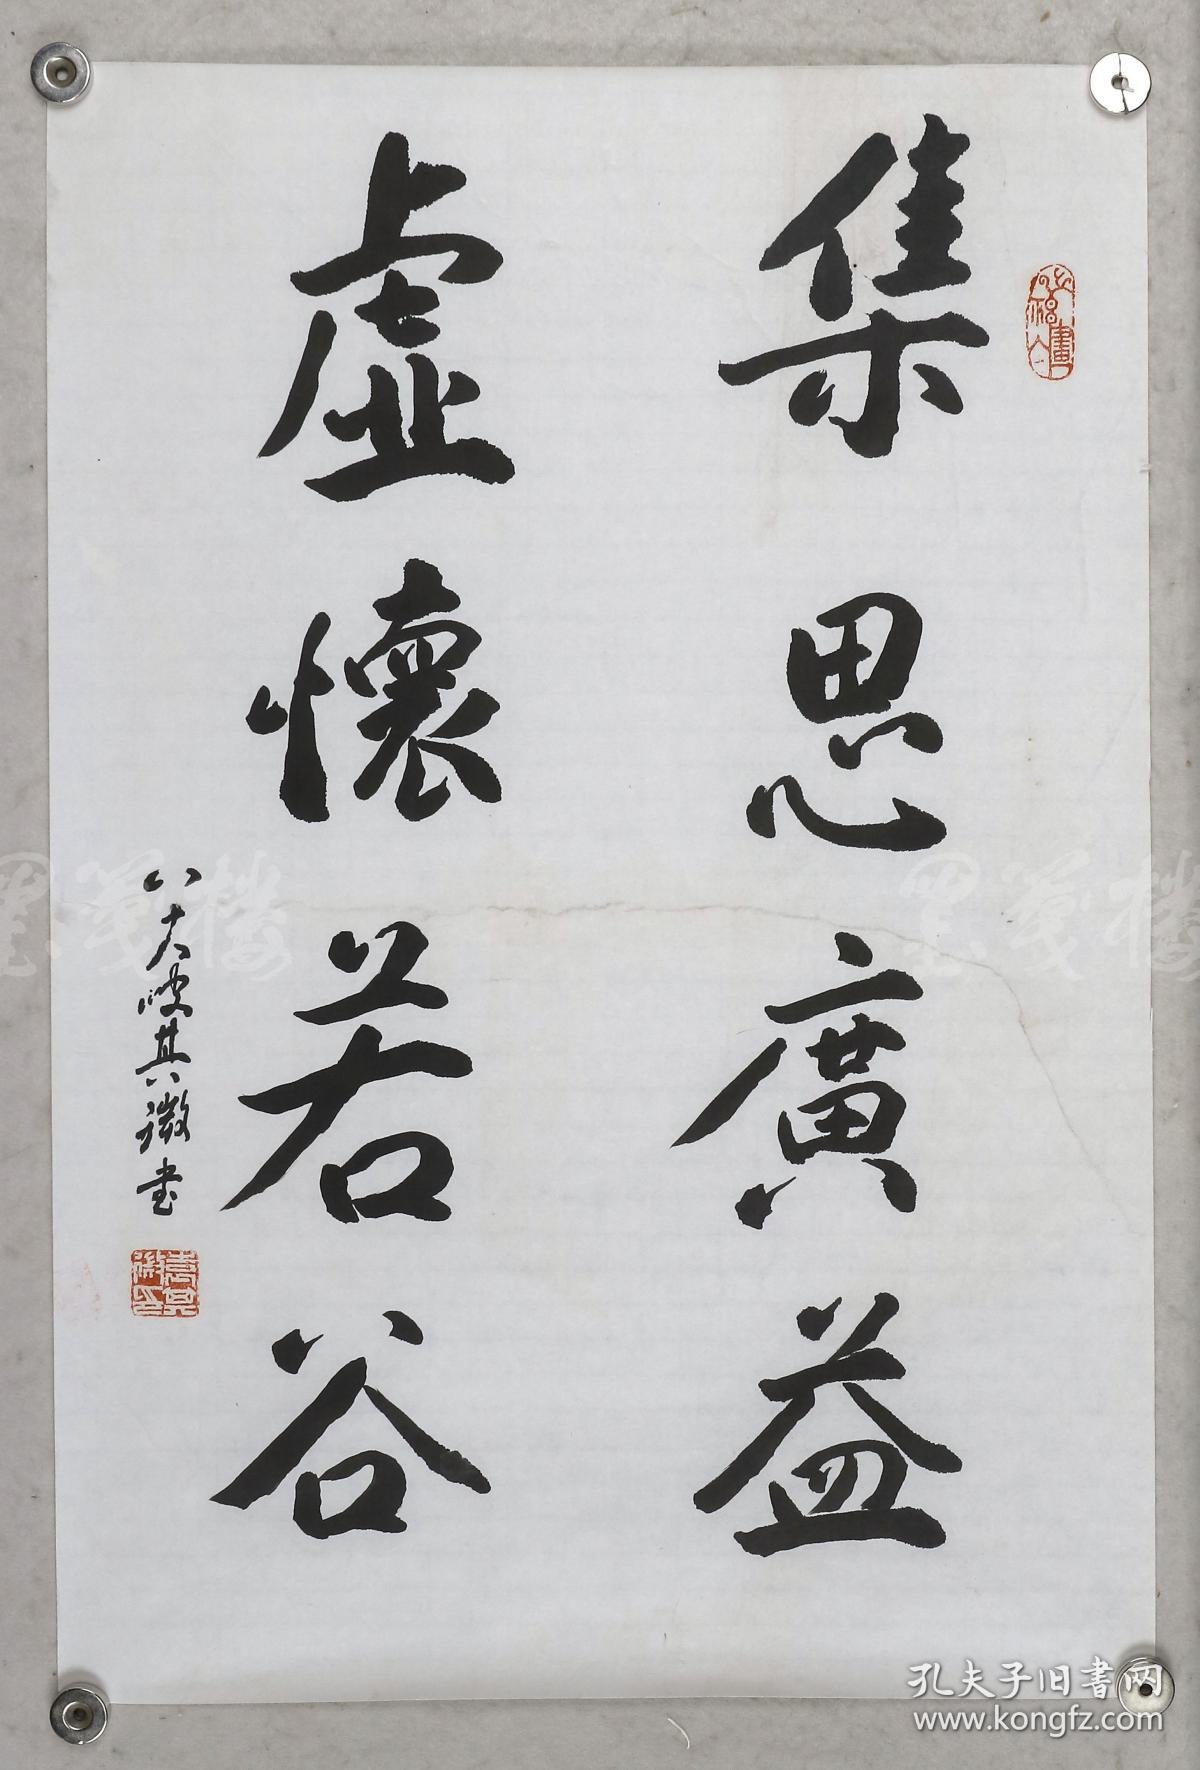 集思廣益
虛懷若谷
八十叟其微書
墨笺楼
墨笺楼
孔夫子旧书网
www.kongfz.com